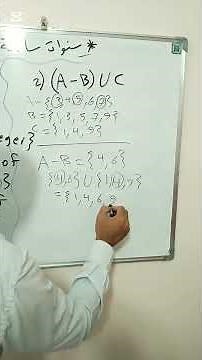 * سنوات سا
2) (A-B) U C
A = {3,4,5,6,7}
B = {1,3,5,7,9}
C = {1,4,9}
eger}
of
A-B = {4,6}
{4,6} U {1,4,9}
= {1,4,6,9